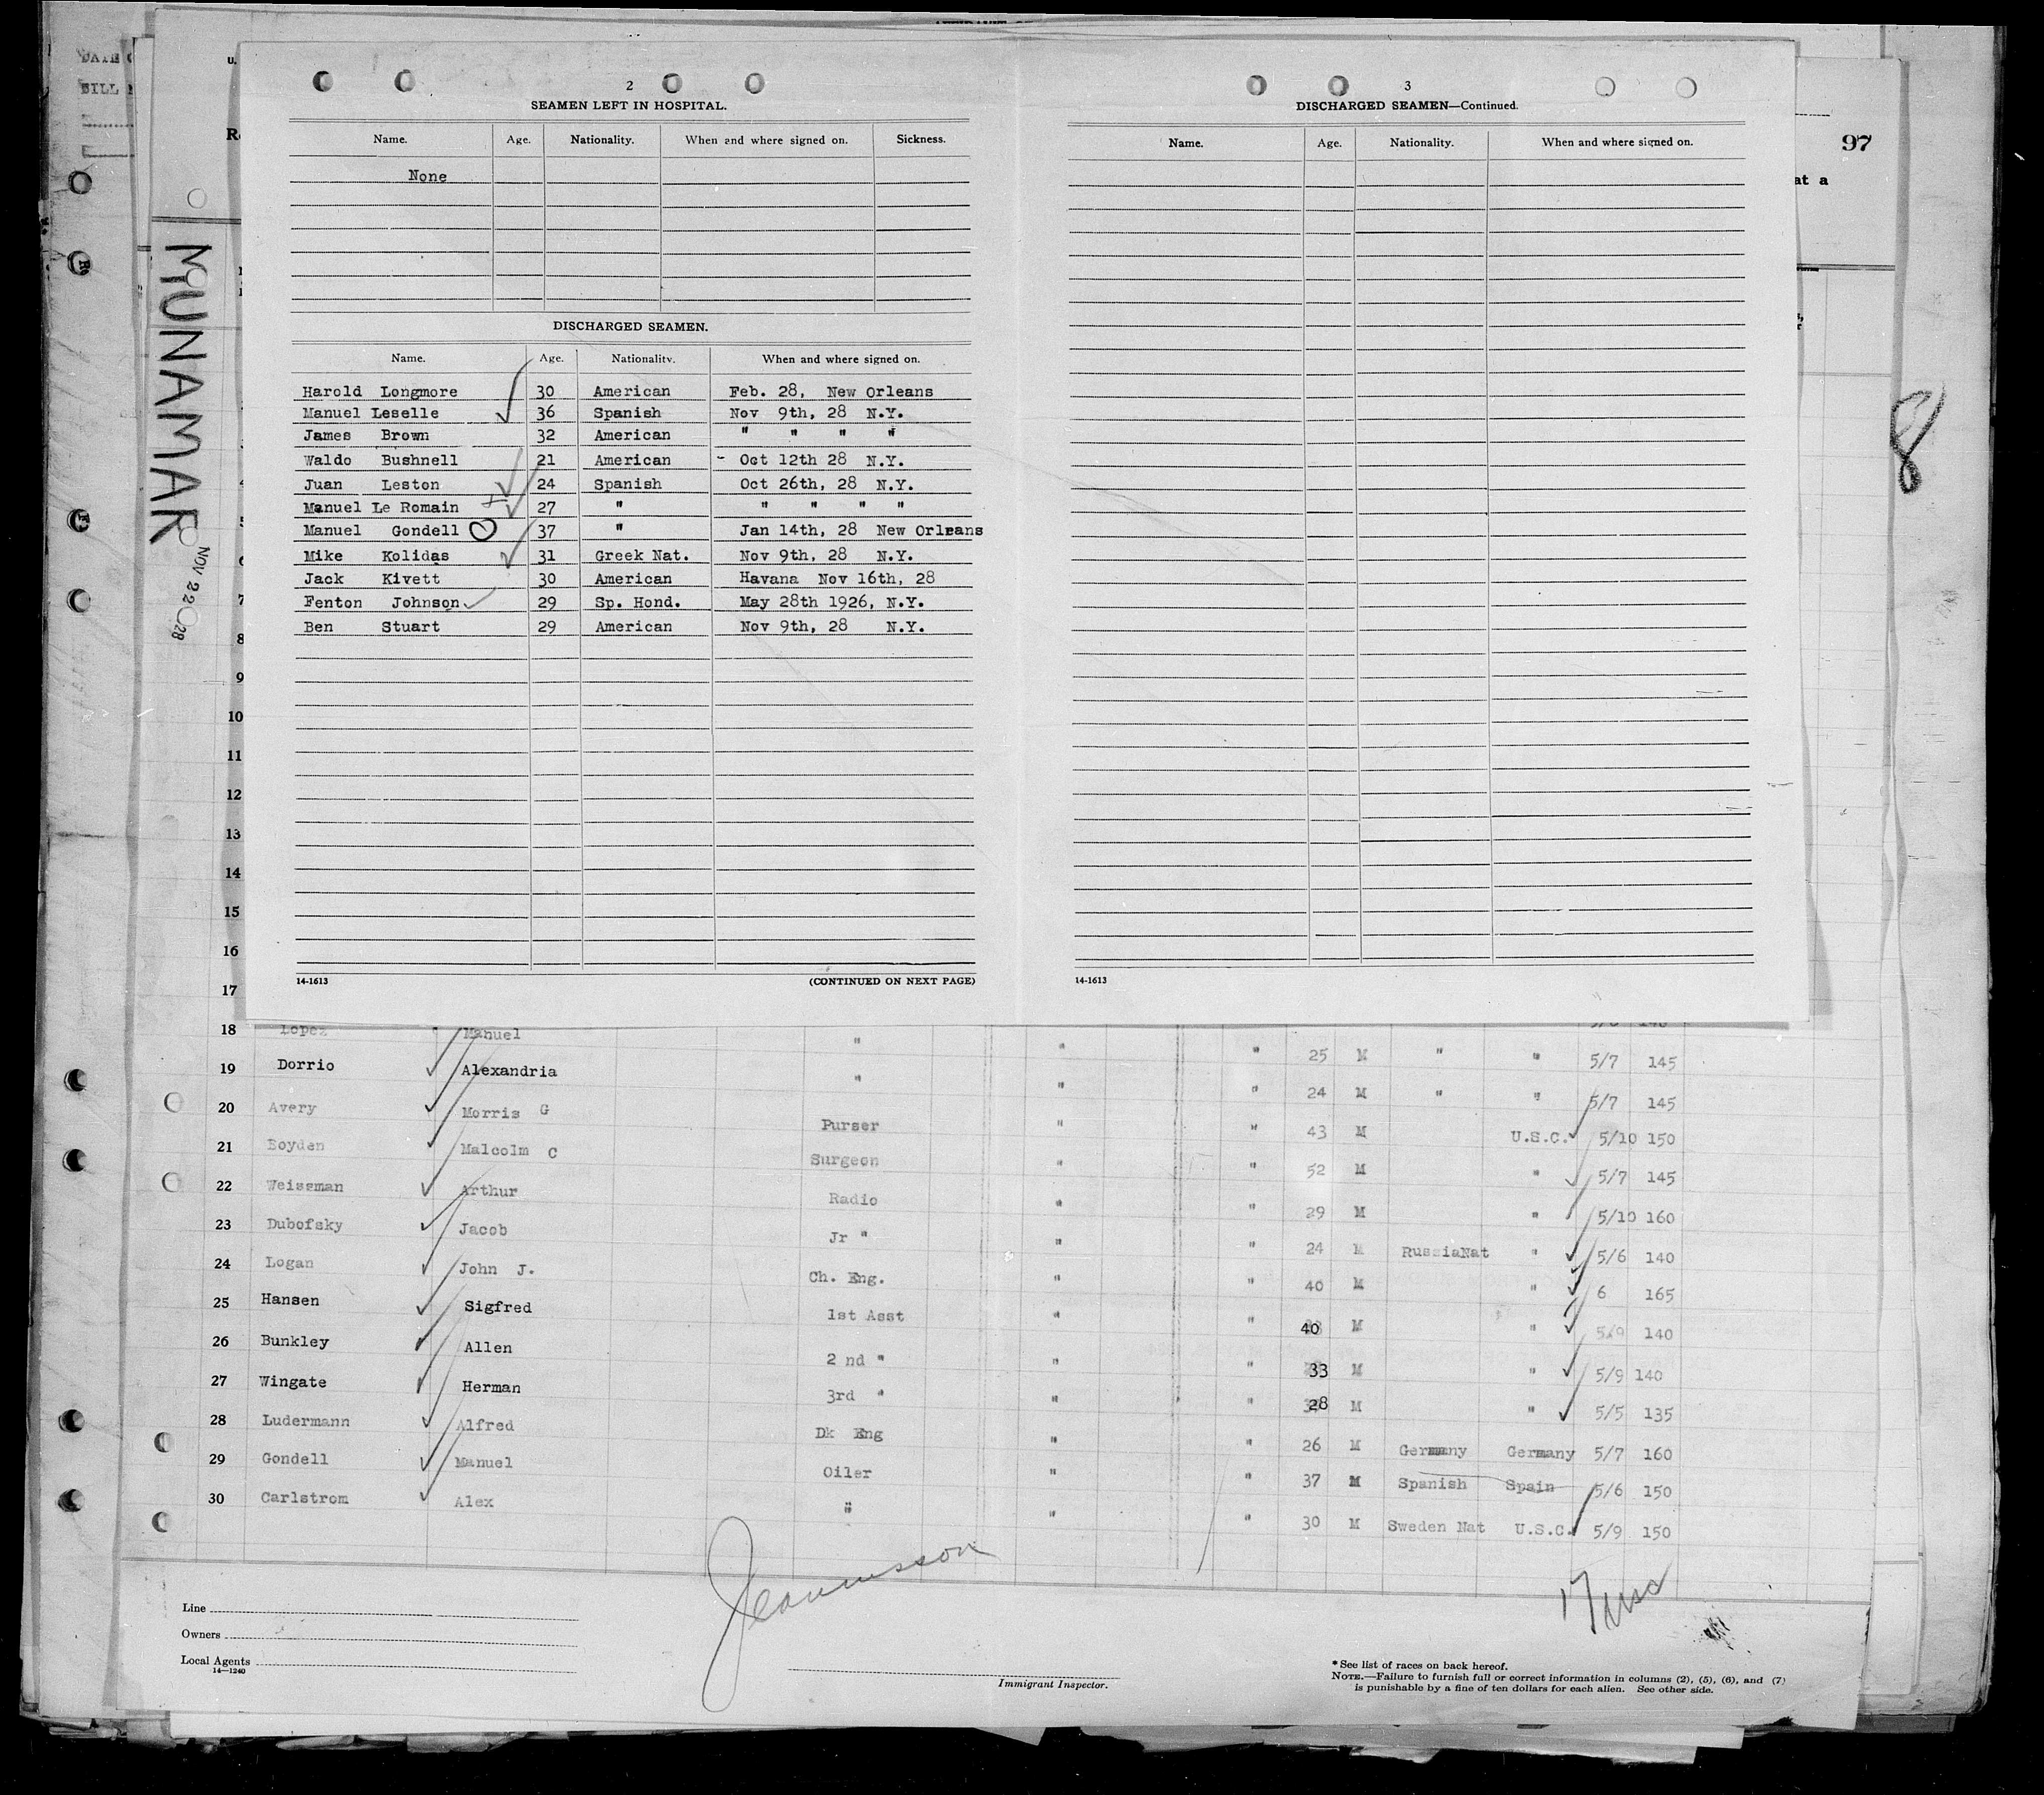 2
SEAMEN LEFT IN HOSPITAL.
Name. Age. Nationality. When and where signed on. Sickness.
None
DISCHARGED SEAMEN.
Name. Age. Nationality. When and where signed on.
Harold Longmore 30 American Feb. 28, New Orleans
Manuel Leselle 36 Spanish Nov 9th, 28 N.Y.
James Brown 32 American " " " "
Waldo Bushnell 21 American - Oct 12th 28 N.Y.
Juan Leston 24 Spanish Oct 26th, 28 N.Y.
Manuel Le Romain 27 " " " " "
Manuel Gondell 37 " Jan 14th, 28 New Orleans
Mike Kolidas 31 Greek Nat. Nov 9th, 28 N.Y.
Jack Kivett 30 American Havana Nov 16th, 28
Fenton Johnson 29 Sp. Hond. May 28th 1926, N.Y.
Ben Stuart 29 American Nov 9th, 28 N.Y.
14-1613 (CONTINUED ON NEXT PAGE)
3
DISCHARGED SEAMEN—Continued.
Name. Age. Nationality. When and where signed on.
14-1613
97
at a
8
MUNAMAR
NOV 22 28
8
9
10
11
12
13
14
15
16
17
18 Lopez Manuel " " " 25 M " " 5/7 145
19 Dorrio Alexandria " " " 24 M " " 5/7 145
20 Avery Morris G Purser " " 43 M U.S.C. 5/10 150
21 Boyden Malcolm C Surgeon " " 52 M " 5/7 145
22 Weissman Arthur Radio " " 29 M " 5/10 160
23 Dubofsky Jacob Jr " " " 24 M RussiaNat " 5/6 140
24 Logan John J. Ch. Eng. " " 40 M " 6 165
25 Hansen Sigfred 1st Asst " " 40 M " 5/9 140
26 Bunkley Allen 2 nd " " " 33 M " 5/9 140
27 Wingate Herman 3rd " " " 28 M " 5/5 135
28 Ludermann Alfred Dk Eng " " 26 M Germany Germany 5/7 160
29 Gondell Manuel Oiler " " 37 M Spanish Spain 5/6 150
30 Carlstrom Alex " " " 30 M Sweden Nat U.S.C. 5/9 150
17 usc
Line
Owners
Local Agents
14—1240
Immigrant Inspector.
*See list of races on back hereof.
NOTE.—Failure to furnish full or correct information in columns (2), (5), (6), and (7)
is punishable by a fine of ten dollars for each alien. See other side.